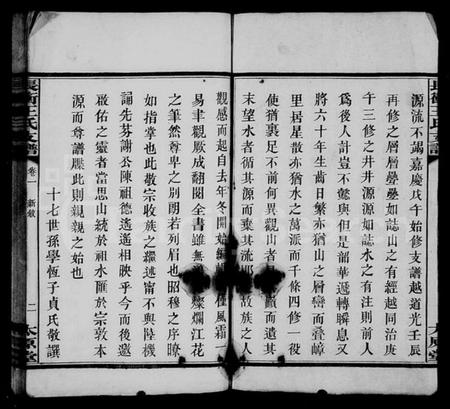 源流不竭嘉慶戊午始修支譜越道光壬辰
再修之層層疊疊如誌山之有經越同治庚
午三修之井井源源如誌水之有注則前人
爲後人計豈不懿與但是韶華遞轉瞬息又
將六十年生齒日繁亦猶山之層巒而疊嶂
里居星散亦猶水之萬派而千條四修一役
使猶裹足不前何異觀山者
末望水者循其源而棄其流
故族之人
觀感而起自去年冬開始編
風霜
易聿觀厥成翻閱全書雖無
燦爛江花
之筆然尊卑之別朗若列眉也昭穆之序瞭
如指掌也此敬宗收族之
述甯不與陸機
誦先芬謝公陳祖德遙遙相映乎今而後邀
啟佑之靈者當思山統於祖水匯於宗敦本
源而尊譜牒此則親親之始也
十七世孫學恆子貞氏敬譔
卷一
新敘
二
太原堂